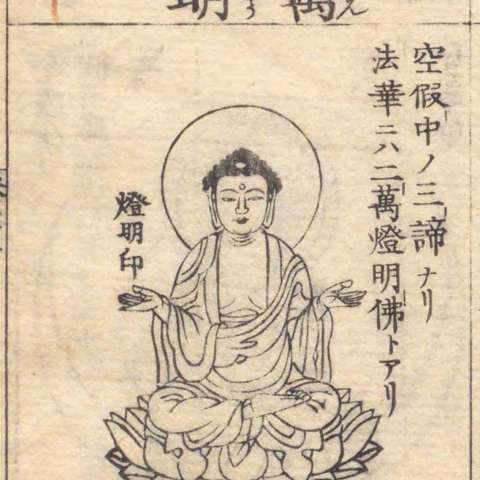 萬ん
明う
空假中ノ三諦ナリ
法華ニハ二萬燈明佛トアリ
燈明印